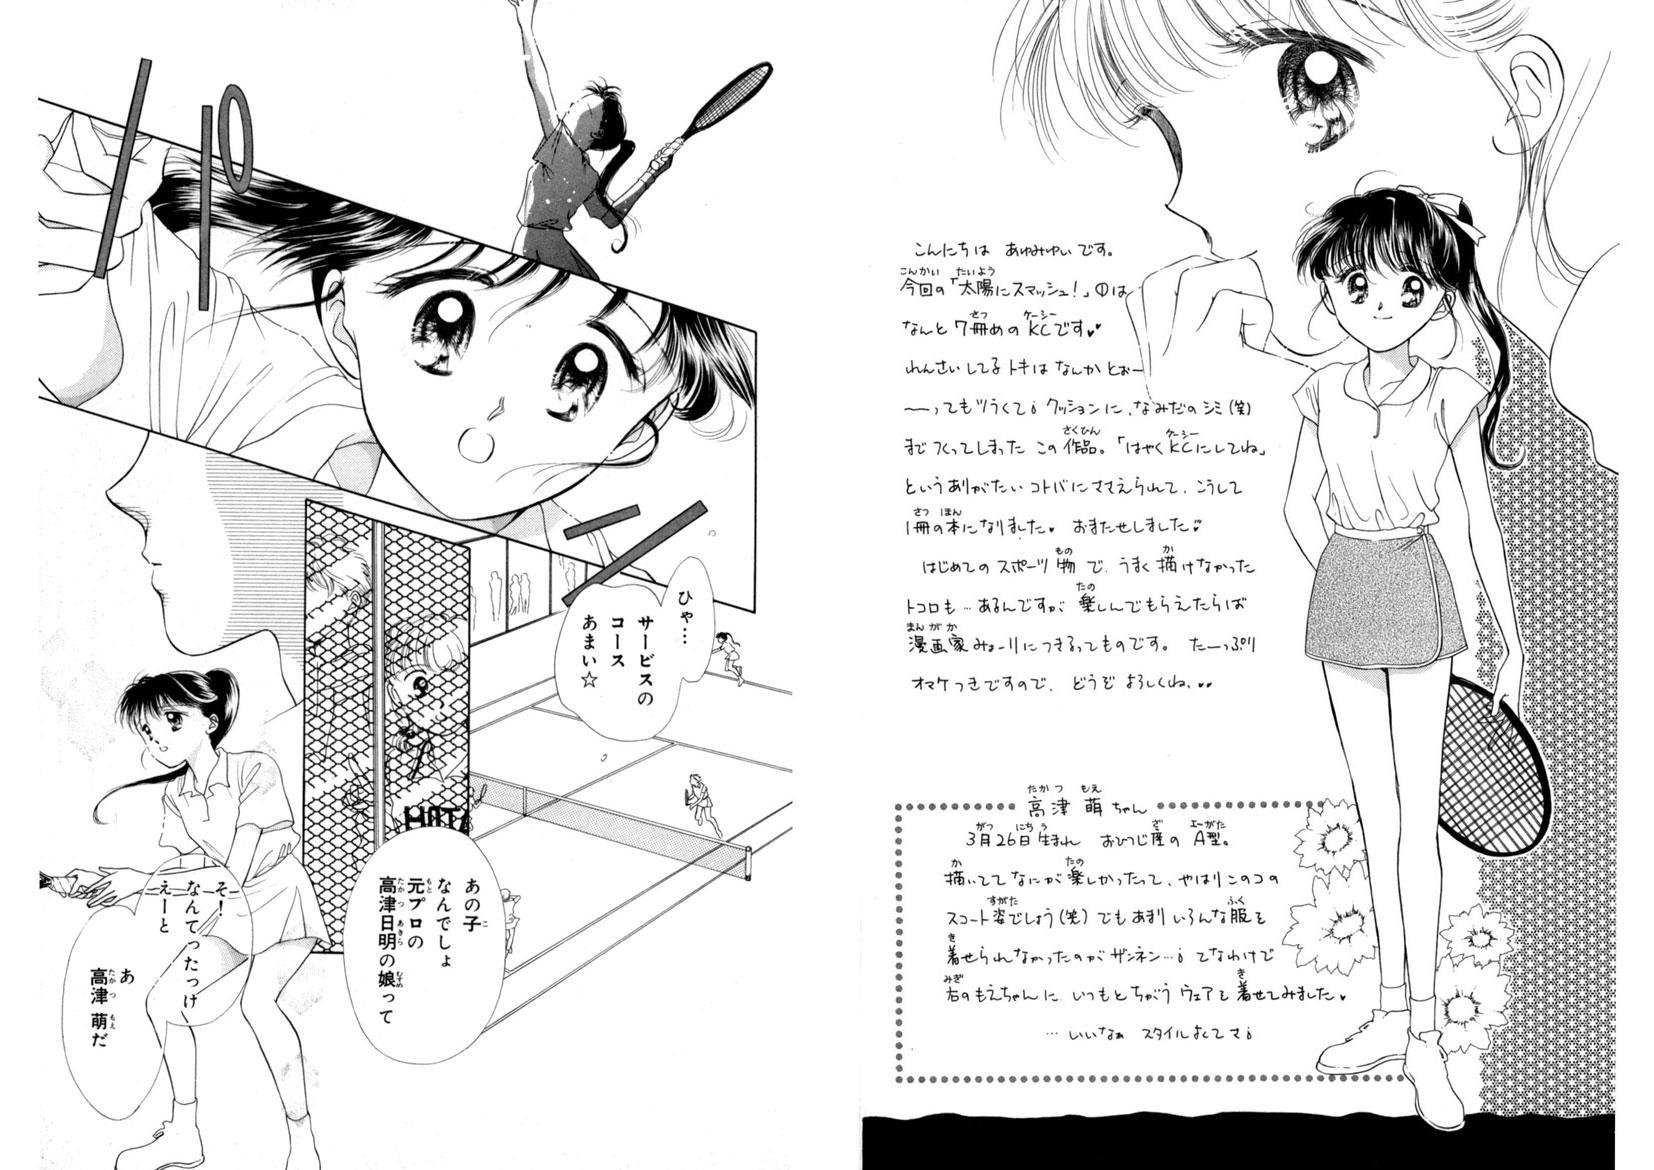 こんにちは あゆみゆい です。
今回の「太陽にスマッシュ!」①は
なんと 7冊めの KCです♥♥
れんさいしてるトキは なんか とぉー
――っても ツラくて。クッションに、なみだの シミ(笑)
まで つくってしまった この 作品。「はやく KCにしてね」
という ありがたい コトバに ささえられて、こうして
1冊の本になりました♥ おまたせしました♥
はじめての スポーツ物 で、うまく 描けなかった
トコロも…あるんですが 楽しんでもらえたらば
漫画家みょーりにつきるってものです。 たーっぷり
オマケつきですので、どうぞ よろしくね、♥♥
高津 萌 ちゃん
3月26日 生まれ おひつじ座の A型。
描いてて なにが 楽しかったって、やはり このコの
スコート姿でしょう(笑) でも あまり いろんな服を
着せられなかったのが ザンネン…。 てなわけで
右の もえちゃんに いつもと ちがう ウェアを 着せてみました♥
…いいなぁ スタイル よくて さ。
パ
ひゃ…
サービスの
コース
あまい☆
HOTA
あの子
なんでしょ
元プロの
高津日明の娘って
そ!
なんてったっけ
えーと
あ
高津 萌だ